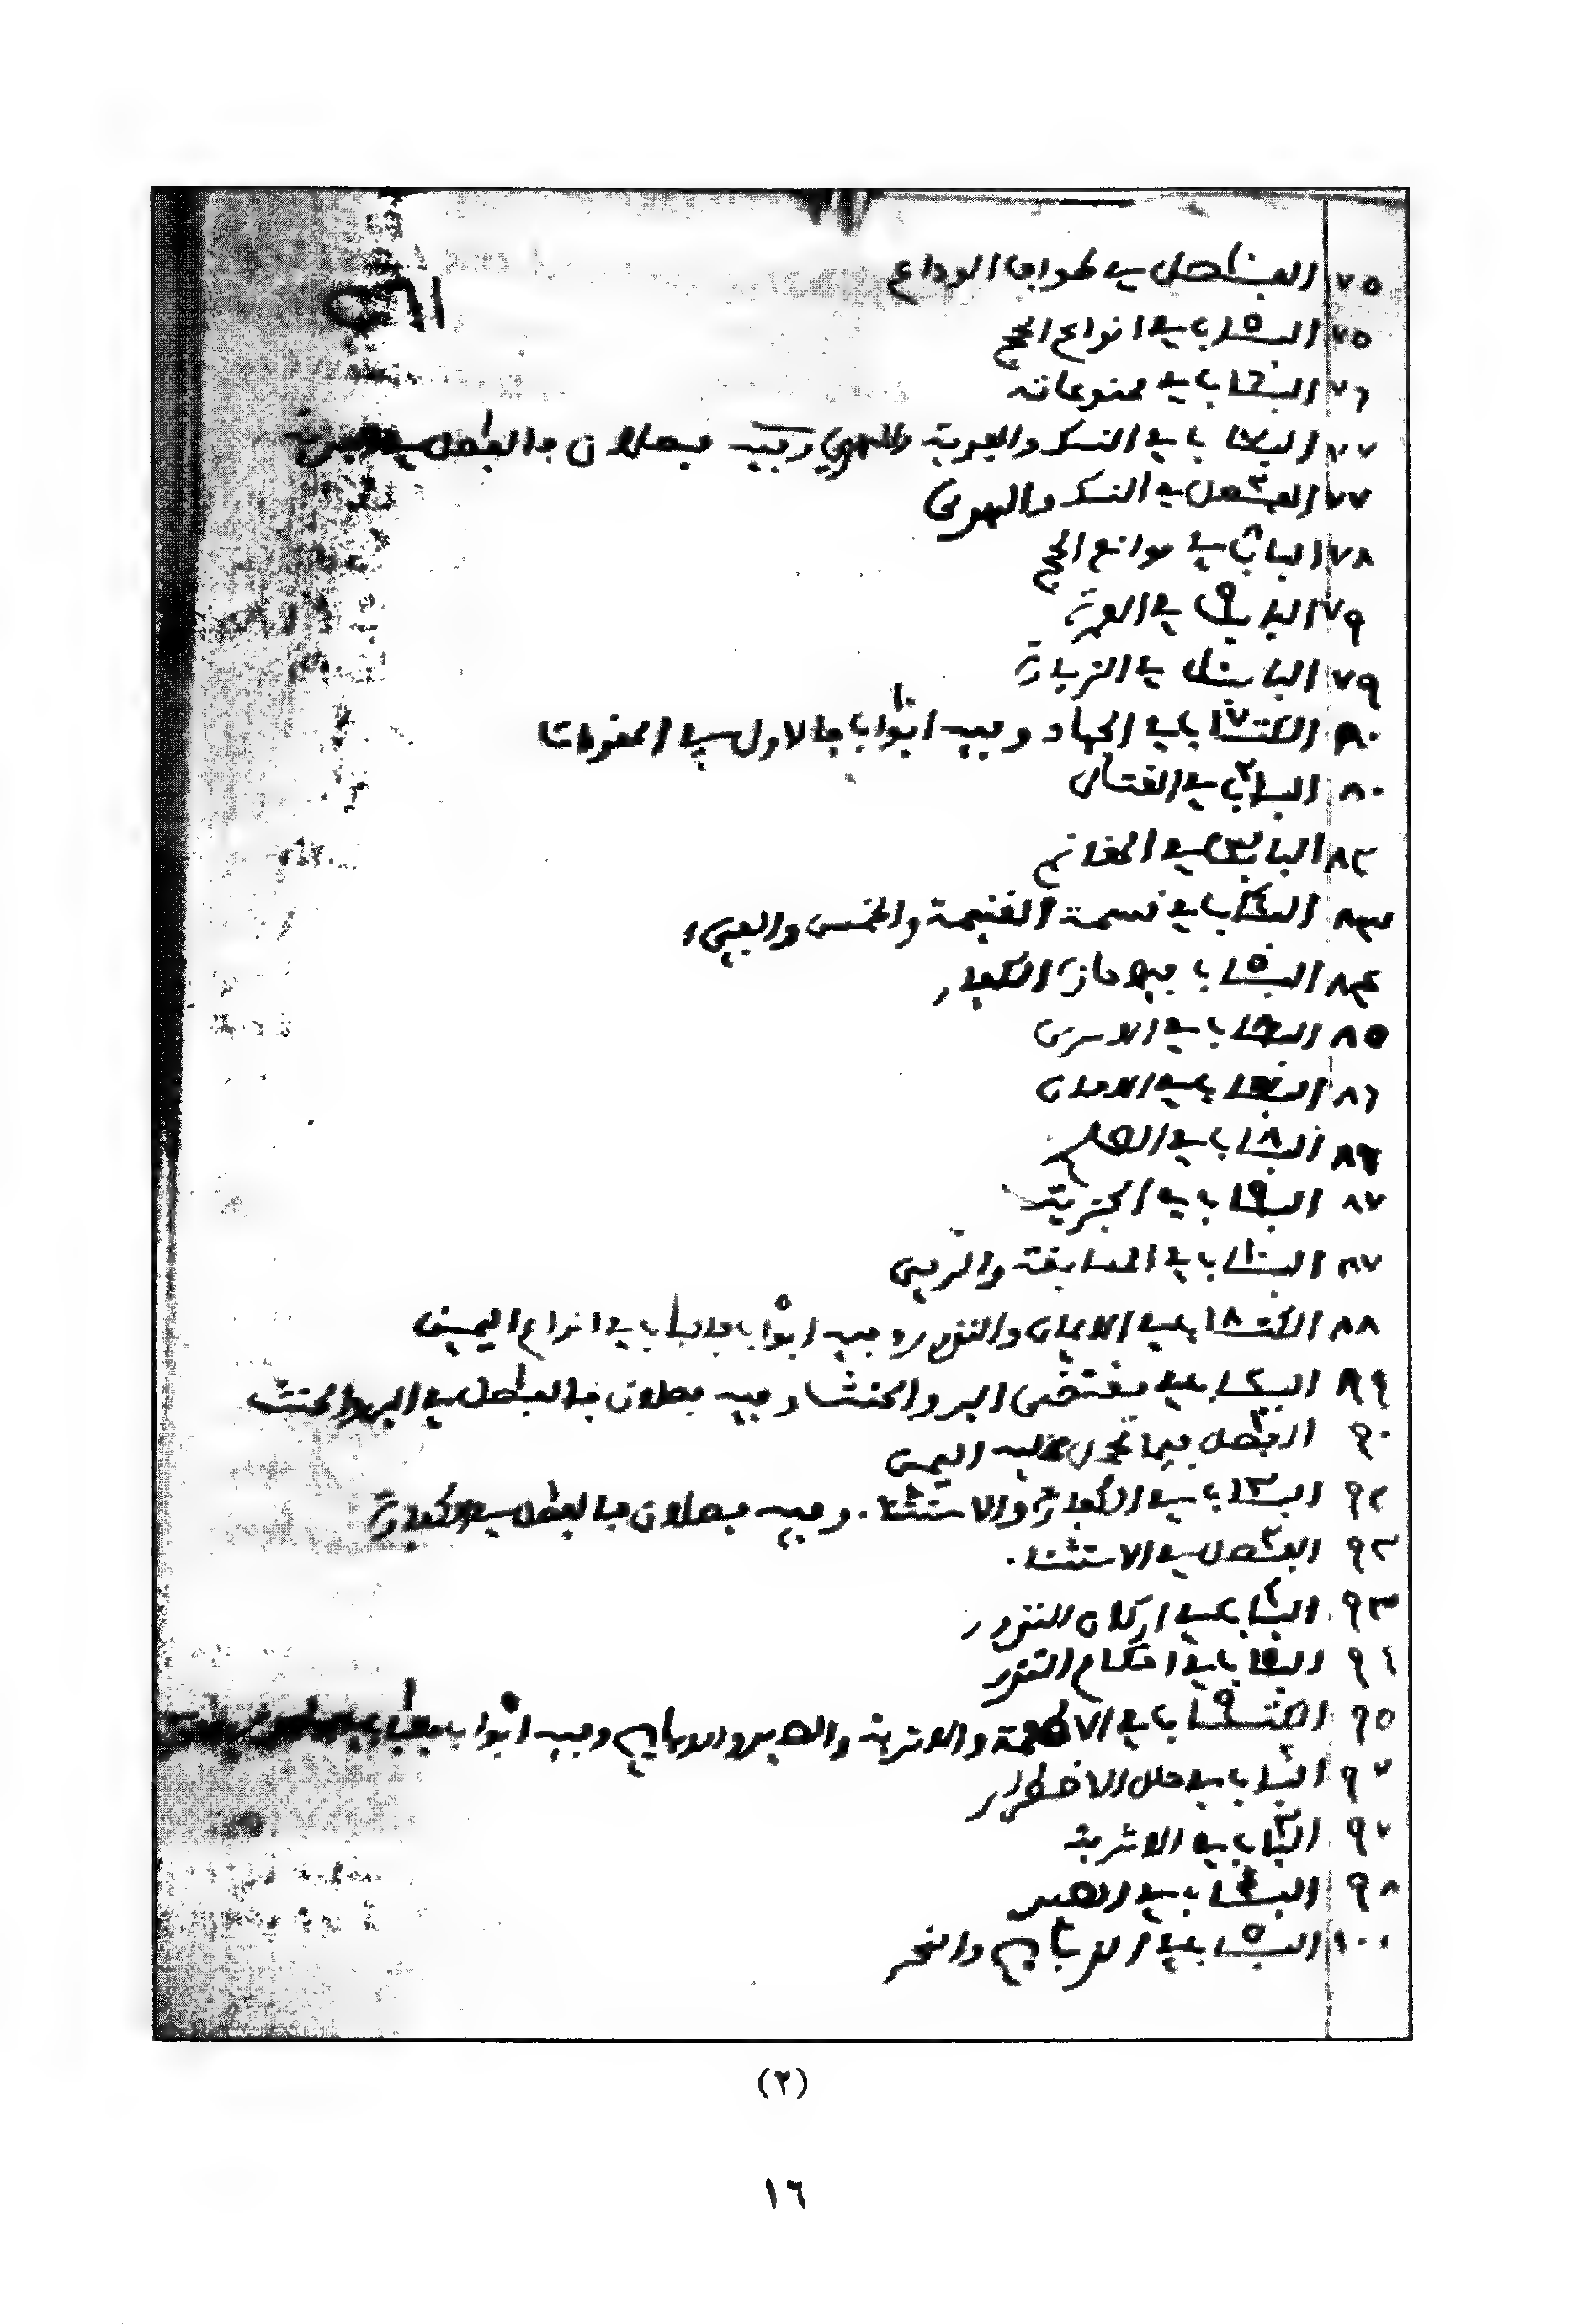 ٧٥ الفصل ١٠ في طواف الوداع
٧٥ الباب ٥ في انواع الحج
٧٦ الباب ٦ في ممنوعاته
٧٧ الباب ٧ في النسك والفدية والهدي وفيه فصلان فالفصل ١ في الفدية
٧٧ الفصل ٢ في النسك والهدي
٧٨ الباب ٨ في موانع الحج
٧٩ الباب ٩ في العمرة
٧٩ الباب ١٠ في الزيارة
٨٠ الكتاب ٧ في الجهاد وفيه ١٠ ابواب فالاول في المقدمات
٨٠ الباب ٢ في القتال
٨٢ الباب ٣ في المغانم
٨٣ الباب ٤ في قسمة الغنيمة والخمس والفيء
٨٤ الباب ٥ فيما حازه الكفار
٨٥ الباب ٦ في الاسرى
٨٦ الباب ٧ في الامان
٨٦ الباب ٨ في الصلح
٨٧ الباب ٩ في الجزية
٨٧ الباب ١٠ في المسابقة والرمي
٨٨ الكتاب ٨ في الايمان والنذور وفيه ٥ ابواب فالباب ١ في انواع اليمين
٨٩ الباب ٢ في مقتضى البر والحنث وفيه فصلان فالفصل ١ في البر والحنث
٩٠ الفصل ٢ فيما تحمل عليه اليمين
٩٢ الباب ٣ في الكفارة والاستثناء وفيه فصلان فالفصل ١ في الكفارة
٩٣ الفصل ٢ في الاستثناء
٩٣ الباب ٤ في اركان النذور
٩٤ الباب ٥ في احكام النذر
٩٥ الكتاب ٩ في الاطعمة والاشربة والصيد والذبايح وفيه ٥ ابواب
٩٧ الباب ٢ في حال الاضطرار
٩٧ الباب ٣ في الاشربة
٩٨ الباب ٤ في الصيد
١٠٠ الباب ٥ في الذبايح والنحر
(٢)
١٦